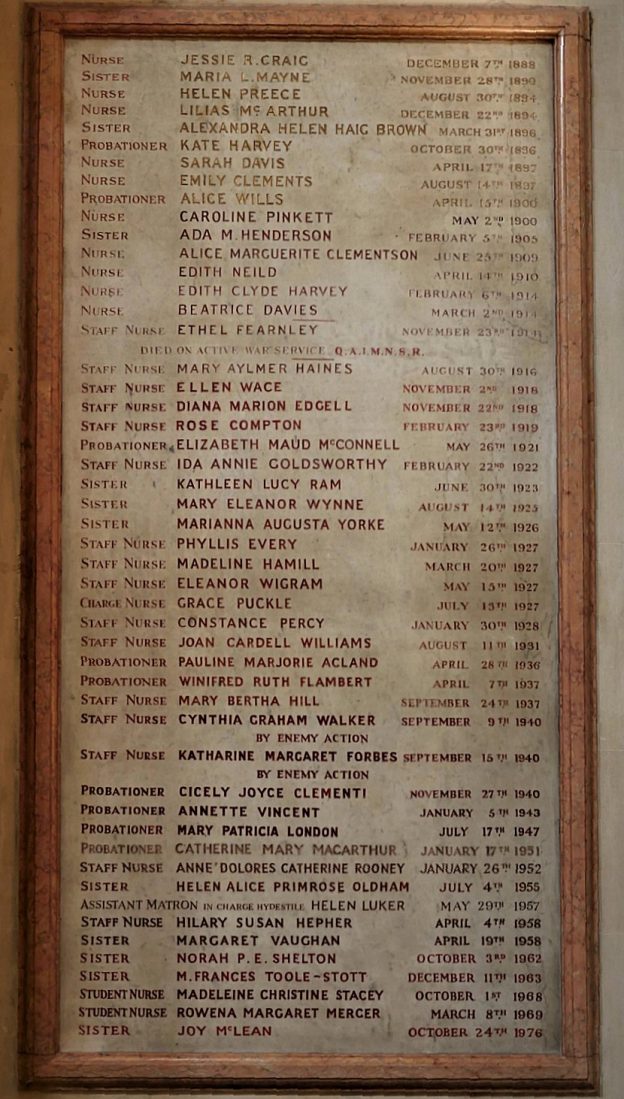 NURSE JESSIE R. CRAIG DECEMBER 7TH 1888
SISTER MARIA L. MAYNE NOVEMBER 28TH 1890
NURSE HELEN PREECE AUGUST 30TH 1894
NURSE LILIAS MC ARTHUR DECEMBER 22ND 1894
SISTER ALEXANDRA HELEN HAIG BROWN MARCH 31ST 1896
PROBATIONER KATE HARVEY OCTOBER 30TH 1896
NURSE SARAH DAVIS APRIL 17TH 1897
NURSE EMILY CLEMENTS AUGUST 14TH 1897
PROBATIONER ALICE WILLS APRIL 15TH 1900
NURSE CAROLINE PINKETT MAY 2ND 1900
SISTER ADA M. HENDERSON FEBRUARY 5TH 1905
NURSE ALICE MARGUERITE CLEMENTSON JUNE 25TH 1909
NURSE EDITH NEILD APRIL 14TH 1910
NURSE EDITH CLYDE HARVEY FEBRUARY 6TH 1914
NURSE BEATRICE DAVIES MARCH 2ND 1914
STAFF NURSE ETHEL FEARNLEY NOVEMBER 23RD
DIED ON ACTIVE WAR SERVICE Q.A.I.M.N.S.R.
STAFF NURSE MARY AYLMER HAINES AUGUST 30TH 1916
STAFF NURSE ELLEN WACE NOVEMBER 2ND 1918
STAFF NURSE DIANA MARION EDGELL NOVEMBER 22ND 1918
STAFF NURSE ROSE COMPTON FEBRUARY 23RD 1919
PROBATIONER ELIZABETH MAUD MCCONNELL MAY 26TH 1921
STAFF NURSE IDA ANNIE GOLDSWORTHY FEBRUARY 22ND 1922
SISTER KATHLEEN LUCY RAM JUNE 30TH 1923
SISTER MARY ELEANOR WYNNE AUGUST 14TH 1925
SISTER MARIANNA AUGUSTA YORKE MAY 12TH 1926
STAFF NURSE PHYLLIS EVERY JANUARY 26TH 1927
STAFF NURSE MADELINE HAMILL MARCH 20TH 1927
STAFF NURSE ELEANOR WIGRAM MAY 15TH 1927
CHARGE NURSE GRACE PUCKLE JULY 15TH 1927
STAFF NURSE CONSTANCE PERCY JANUARY 30TH 1928
STAFF NURSE JOAN CARDELL WILLIAMS AUGUST 11TH 1931
PROBATIONER PAULINE MARJORIE ACLAND APRIL 28TH 1936
PROBATIONER WINIFRED RUTH FLAMBERT APRIL 7TH 1937
STAFF NURSE MARY BERTHA HILL SEPTEMBER 24TH 1937
STAFF NURSE CYNTHIA GRAHAM WALKER SEPTEMBER 9TH 1940
BY ENEMY ACTION
STAFF NURSE KATHARINE MARGARET FORBES SEPTEMBER 15TH 1940
BY ENEMY ACTION
PROBATIONER CICELY JOYCE CLEMENTI NOVEMBER 27TH 1940
PROBATIONER ANNETTE VINCENT JANUARY 5TH 1943
PROBATIONER MARY PATRICIA LONDON JULY 17TH 1947
PROBATIONER CATHERINE MARY MACARTHUR JANUARY 17TH 1951
STAFF NURSE ANNE DOLORES CATHERINE ROONEY JANUARY 26TH 1952
SISTER HELEN ALICE PRIMROSE OLDHAM JULY 4TH 1955
ASSISTANT MATRON IN CHARGE HYDESTILE HELEN LUKER MAY 29TH 1957
STAFF NURSE HILARY SUSAN HEPHER APRIL 4TH 1958
SISTER MARGARET VAUGHAN APRIL 19TH 1958
SISTER NORAH P. E. SHELTON OCTOBER 3RD 1962
SISTER M. FRANCES TOOLE-STOTT DECEMBER 11TH 1963
STUDENT NURSE MADELEINE CHRISTINE STACEY OCTOBER 1ST 1968
STUDENT NURSE ROWENA MARGARET MERCER MARCH 8TH 1969
SISTER JOY MCLEAN OCTOBER 24TH 1976